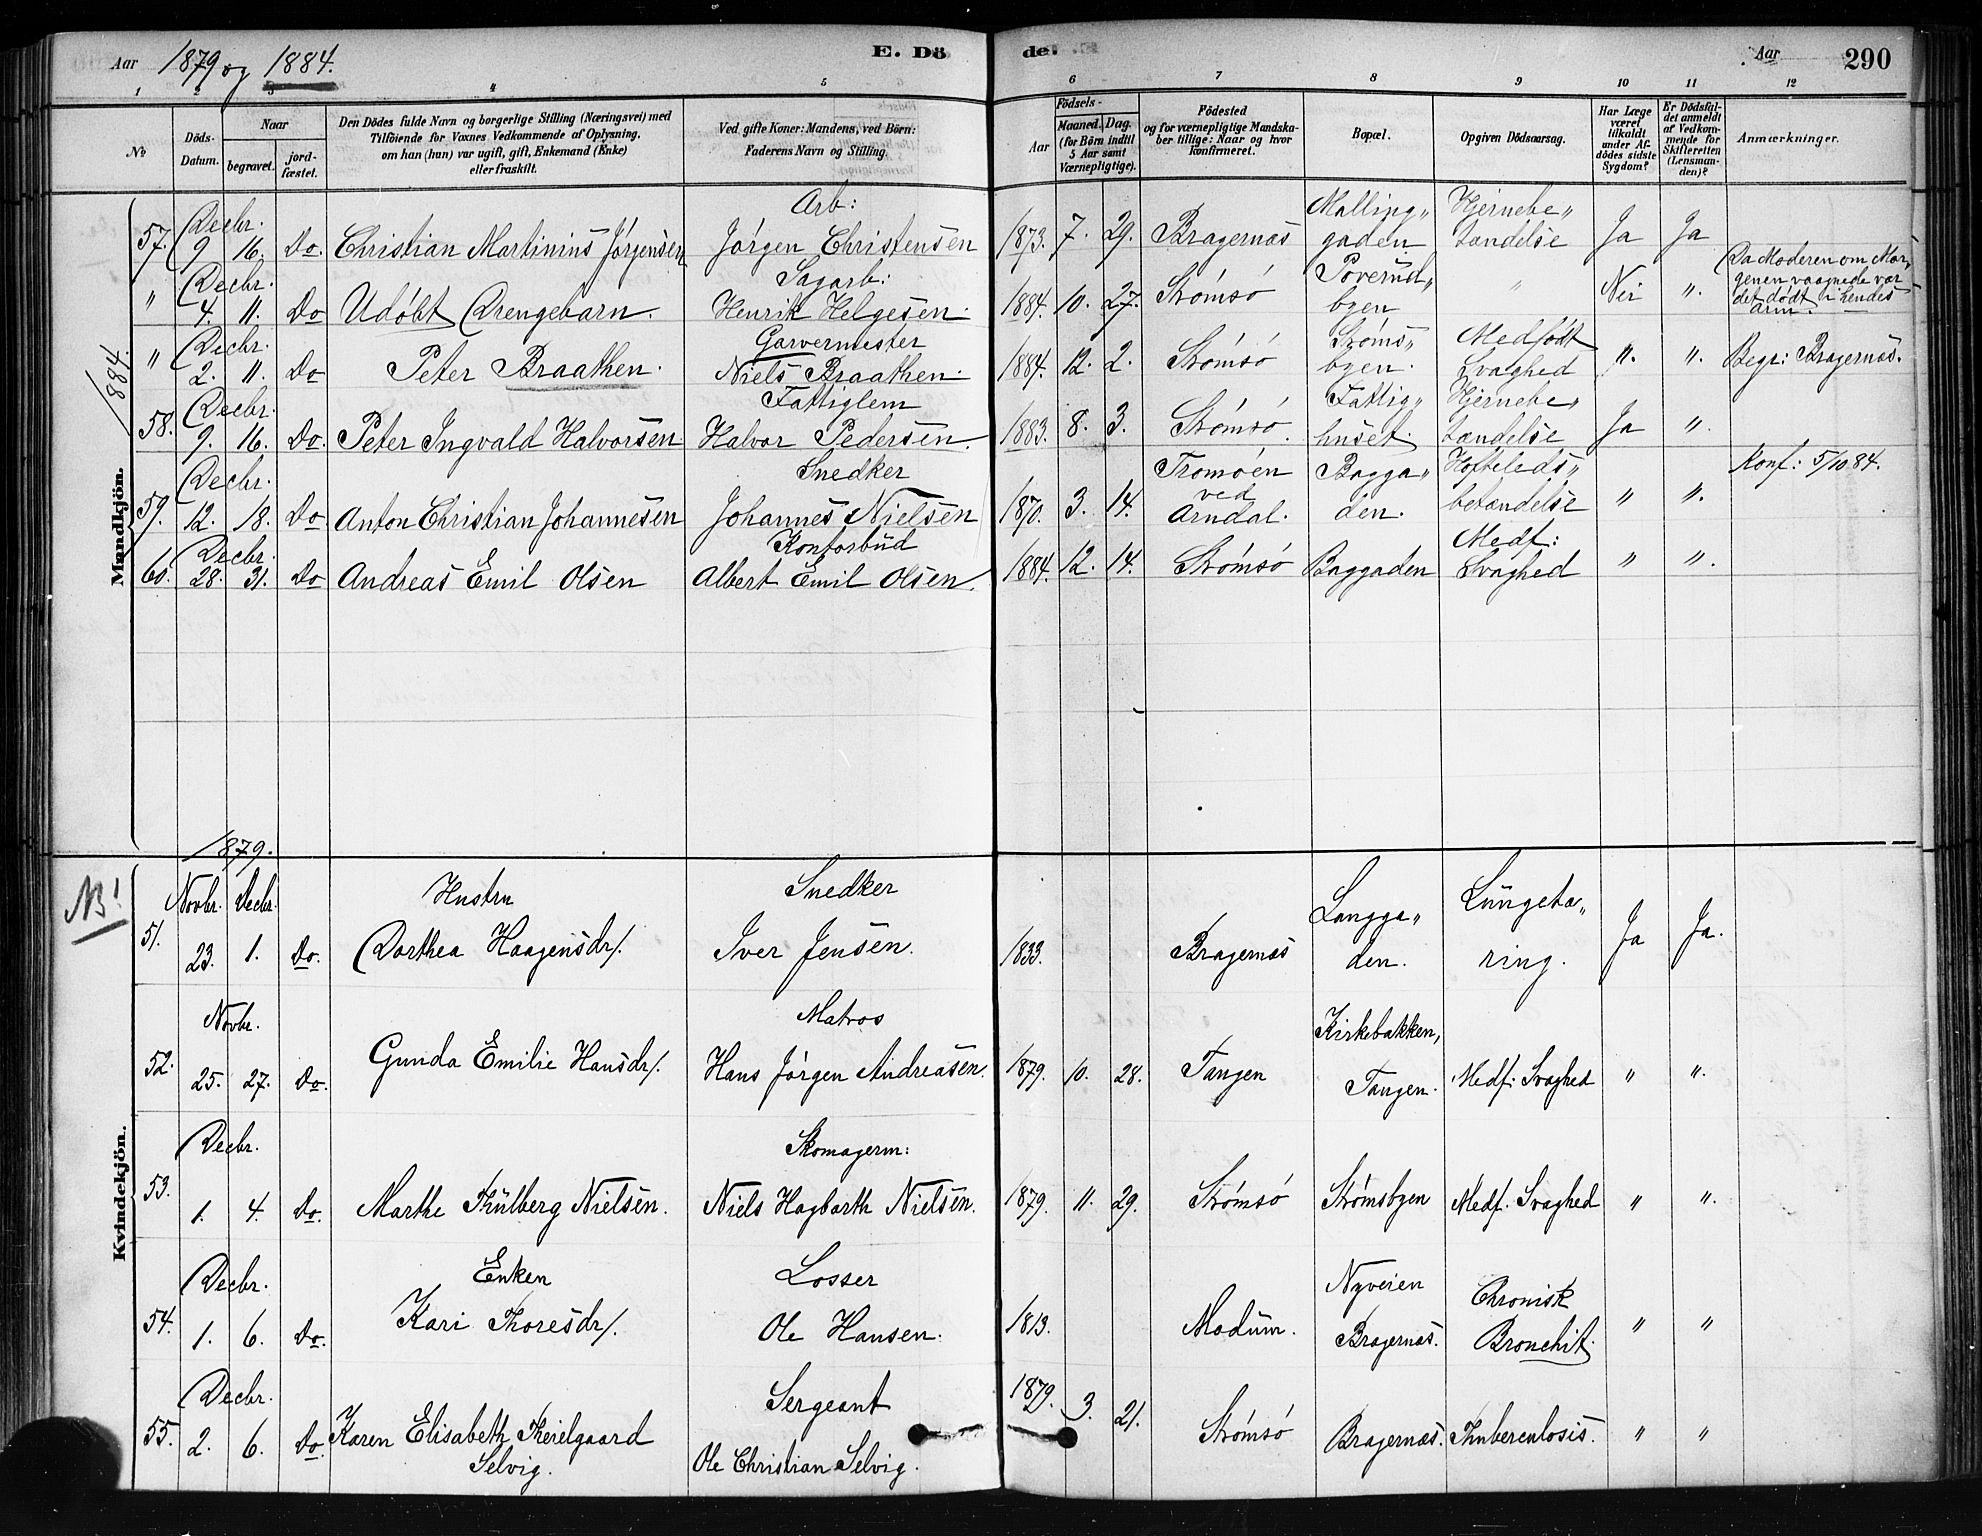 Aar 1879 og 1884. E. Dö de. Aar 290
1 2 3 4 5 6 7 8 9 10 11 12
No
Döds-Datum.
Naar
begravet.
jordfæstet.
Den Dödes fulde Navn og borgerlige Stilling (Næringsvei) med
Tilföiende for Voxnes Vedkommende af Oplysning,
om han (hun) var ugift, gift, Enkemand (Enke)
eller fraskilt.
Ved gifte Koner: Mandens, ved Börn:
Faderens Navn og Stilling.
Födsels-
Aar
Maaned. Dag.
(for Börn indtil
5 Aar samt
Værnepligtige).
Födested
og for værnepligtige Mandska-
ber tillige: Naar og hvor
konfirmeret.
Bopæl.
Opgiven Dödsaarsag.
Har Læge
været
tilkaldt
under Af-
dödes sidste
Sygdom?
Er Dödsfal-
det anmeldt
af Vedkom-
mende for
Skifteretten
(Lensman-
den)?
Anmærkninger.
1884.
Mandkjön.
Decbr. Arb: Malling„ Hjernebe„
57. 9 16. Do. Christian Martinius Jørgensen Jørgen Christensen 1873. 7. 29. Bragernæs gaden tændelse Ja Ja
Decbr. Sagarb: Poverud„ Da Moderen om Mor„
" 4. 11. Do Udøbt Drengebarn. Henrik Helgesen. 1884. 10. 27. Strømsø byen " Nei "
genen vaagnede var
det dødt i hendes
arm.
Decbr. Garvermester Strøms„ Medfødt
" 2. 11. Do Peter Braathen. Niels Braathen. 1884. 12. 2. Strømsø byen. Svaghed " " Begr: Bragernæs.
Decbr. Fattiglem Fattig„ Hjernebe„
58. 9. 16. Do. Peter Ingvald Halvorsen Halvor Pedersen. 1883. 8. 3. Strømsø. huset. tændelse Ja "
Decbr. Snedker Tromøen Bagga„ Hofteleds„ Konf: 5/10 84.
59. 12. 18. Do Anton Christian Johannesen Johannes Nielsen 1870. 3. 14. ved Arndal. den. betændelse " "
Decbr. Kontorbud Medf:
60. 28. 31. Do Andreas Emil Olsen Albert Emil Olsen. 1884. 12. 14. Strømsø Baggaden Svaghed " "
1879.
NB!
Kvindekjön.
Novbr. Decbr. Hustru Snedker Langga„ Lungetæ„
51. 23. 1. Do. Dorthea Haagensdr/. Iver Jensen. 1833. Bragernæs den. ring. Ja Ja.
Novbr. Matros Kirkebakken,
52. 25. 27. Do. Gunda Emilie Hansdr/. Hans Jørgen Andreasen. 1879. 10. 28. Tangen Tangen. Medf: Svaghed " "
Decbr. Skomagerm:
53. 1. 4. Do. Marthe Thulberg Nielsen. Niels Hagbarth Nielsen. 1879. 11. 29. Strømsø Strømsbyen Medf. Svaghed " "
Decbr. Enken Losser Nyveien Chronisk
54. 1. 6. Do. Kari Thoresdr/. Ole Hansen. 1813. Modum. Bragernæs. Bronchit. " "
Decbr. Sergeant
55. 2. 6. Do. Karen Elisabeth Selvig. Ole Christian Selvig. 1879. 3. 21. Strømsø Bragernæs. Thuberculosis. " "